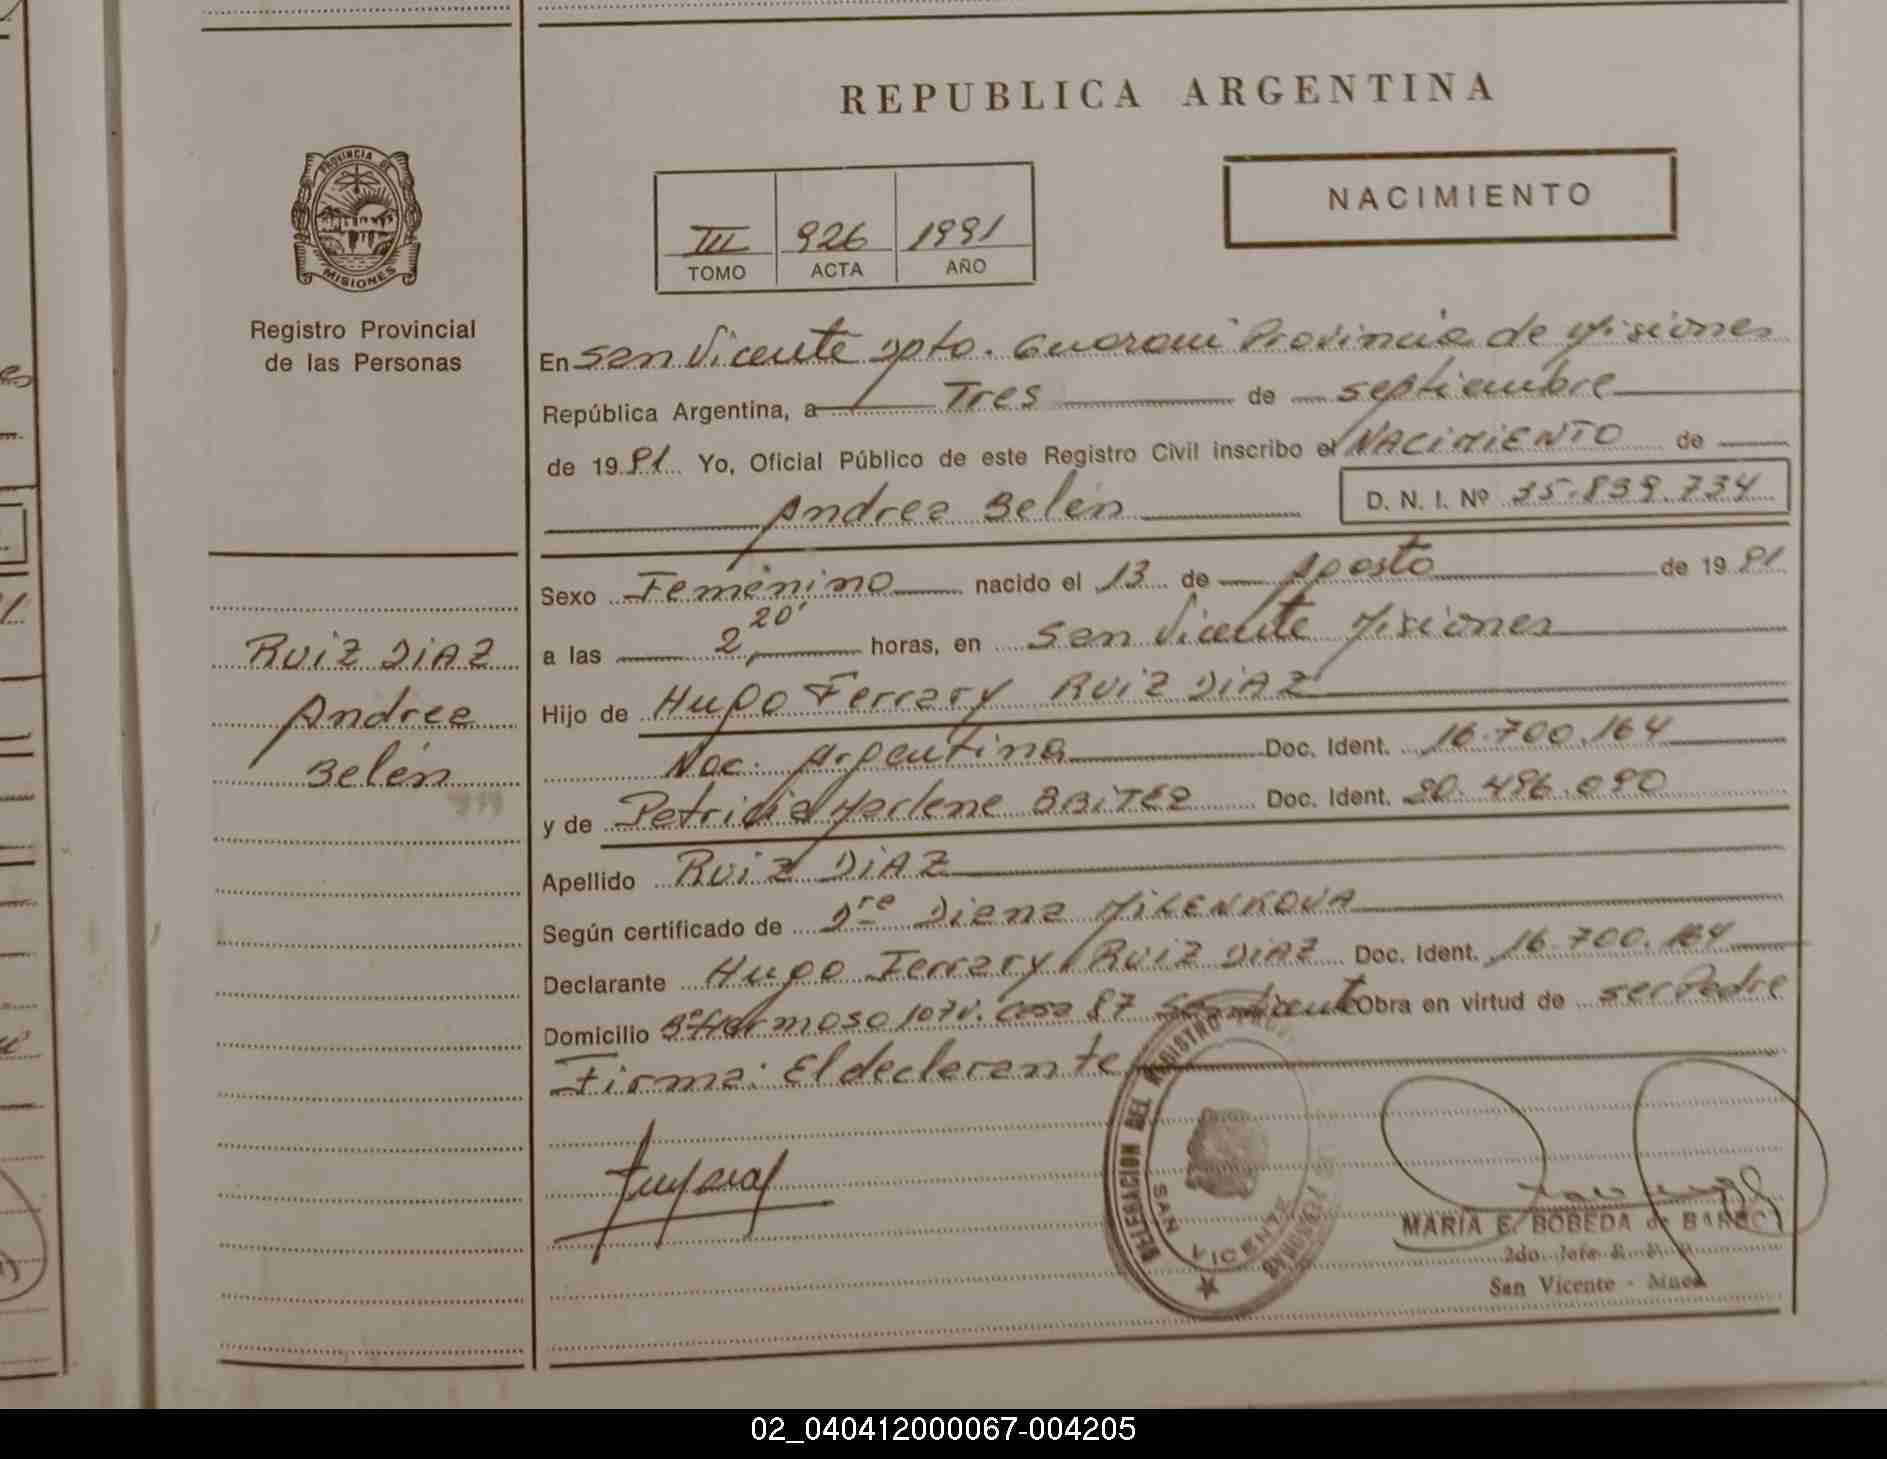 REPUBLICA ARGENTINA
PROVINCIA DE
MISIONES
Registro Provincial
de las Personas
III 926 1991
TOMO ACTA AÑO
NACIMIENTO
En San Vicente Dpto. Guarani Provincia de Misiones
República Argentina, a Tres de septiembre
de 1991 Yo, Oficial Público de este Registro Civil inscribo el NACIMIENTO de
Andrea Belén D. N. I. Nº 35.839.734
Sexo Femenino nacido el 13 de Agosto de 1991
a las 2,20' horas, en San Vicente Misiones
Hijo de Hugo Ferrary RUIZ DIAZ
Nac. Argentina Doc. Ident. 16.700.164
y de Patricia Marlene BRITEZ Doc. Ident. 20.496.090
Apellido RUIZ DIAZ
Según certificado de Dra Diana MILENKOVA
Declarante Hugo Ferrary RUIZ DIAZ Doc. Ident. 16.700.164
Domicilio Bº Hermoso 107v. casa 87 San Vicente Obra en virtud de ser Padre
Firma: El declarante
RUIZ DIAZ
Andrea
Belén
DELEGACION DEL REGISTRO
SAN VICENTE
MARIA E. BOBEDA de
2do. Jefe
San Vicente - Mnes
02_040412000067-004205